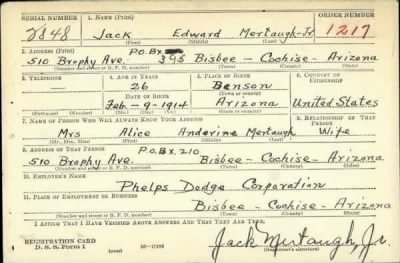 SERIAL NUMBER 1. NAME (Print) ORDER NUMBER
2848 Jack Edward Mertaugh-Jr. 1217
(First) (Middle) (Last)
2. ADDRESS (Print) P.O.BX
510 Brophy Ave. 395 Bisbee - Cochise - Arizona
(Number and street or R. F. D. number) (Town) (County) (State)
3. TELEPHONE 4. AGE IN YEARS 5. PLACE OF BIRTH 6. COUNTRY OF CITIZENSHIP
26 Benson
DATE OF BIRTH (Town or county)
Feb - 9 - 1914 Arizona United States
(Exchange) (No.) (Mo.) (Day) (Yr.) (State or country)
7. NAME OF PERSON WHO WILL ALWAYS KNOW YOUR ADDRESS 8. RELATIONSHIP OF THAT PERSON
Mrs Alice Anderine Mertaugh Wife
(Mr., Mrs., Miss) (First) (Middle) (Last)
9. ADDRESS OF THAT PERSON P.O.BX. 210
510 Brophy Ave. Bisbee - Cochise - Arizona
(Number and street or R. F. D. number) (Town) (County) (State)
10. EMPLOYER'S NAME
Phelps Dodge Corporation
11. PLACE OF EMPLOYMENT OR BUSINESS
Bisbee - Cochise - Arizona
(Number and street or R. F. D. number) (Town) (County) (State)
I AFFIRM THAT I HAVE VERIFIED ABOVE ANSWERS AND THAT THEY ARE TRUE.
REGISTRATION CARD
D. S. S. Form 1 (over) Jack Mertaugh, Jr.
(Registrant's signature)